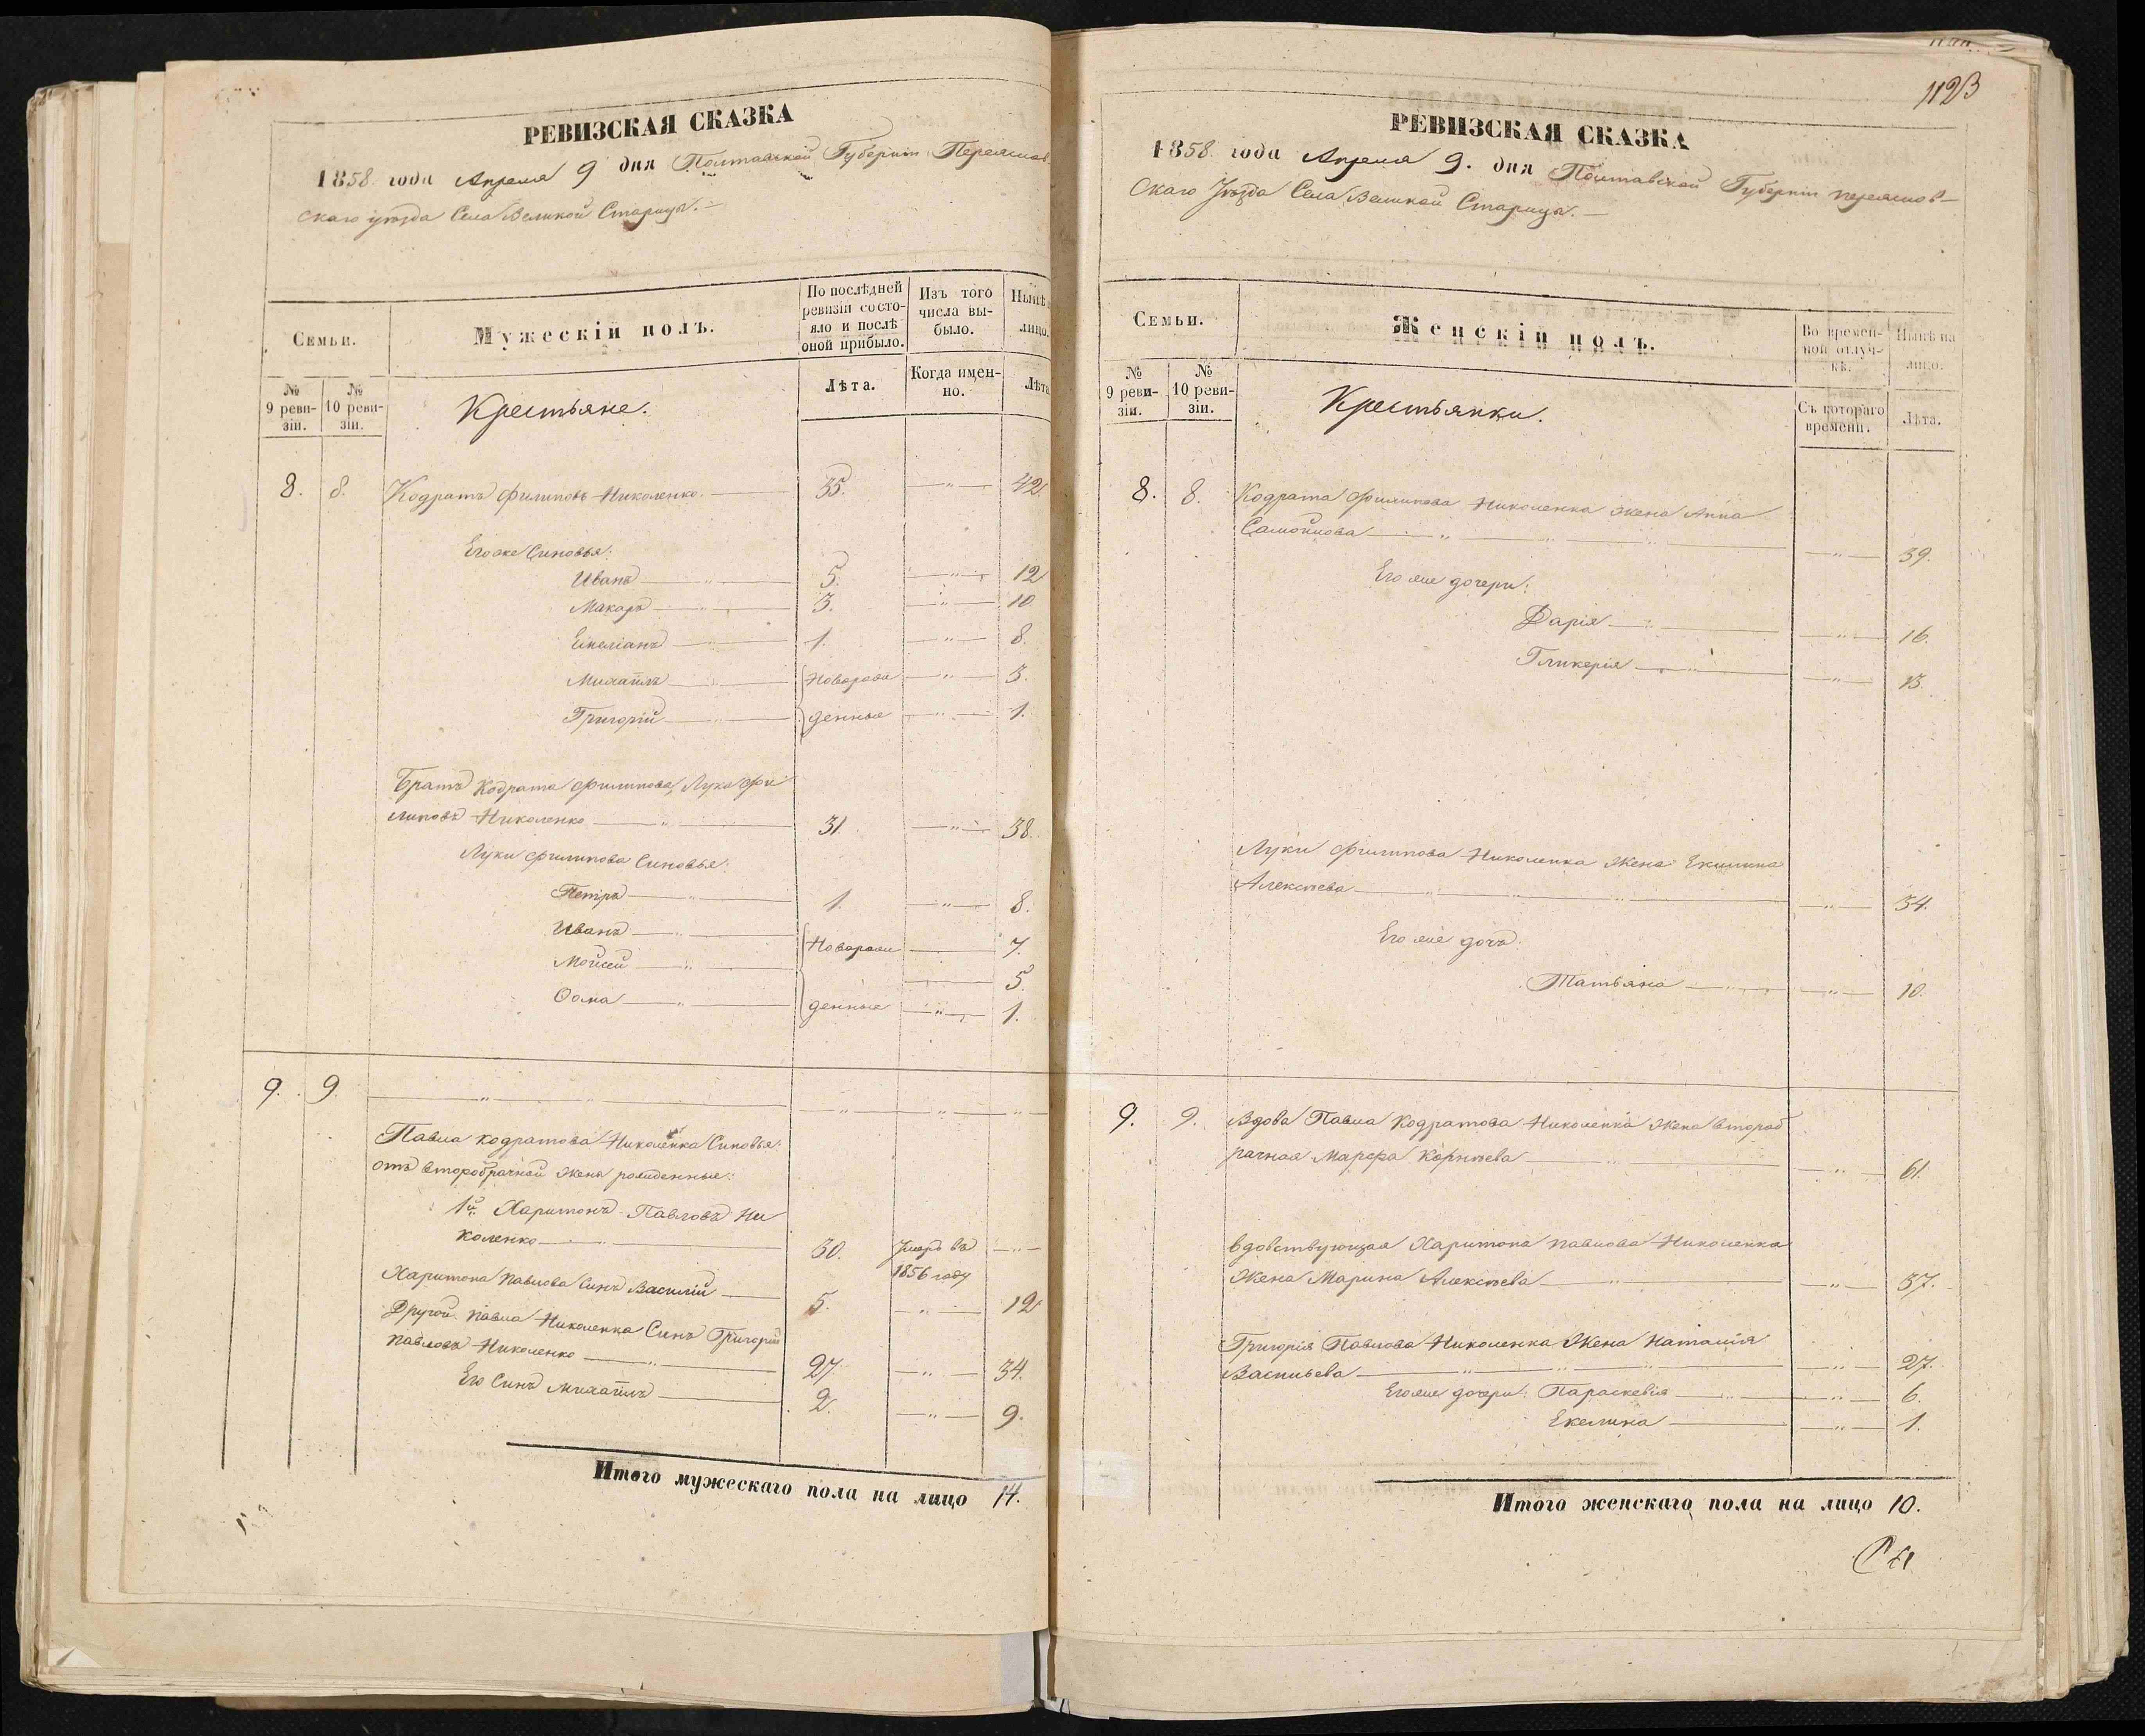 РЕВИЗСКАЯ СКАЗКА
1858 года Апреля 9 дня Полтавской Губерніи Переяслов
скаго уѣзда Села Великой Старицы.
Семьи.
Мужескій полъ.
По послѣдней ревизіи состояло и послѣ оной прибыло.
Изъ того числа выбыло.
Нынѣ
лицо.
№ 9 ревизіи.
№ 10 ревизіи.
Крестьяне.
Лѣта.
Когда именно.
Лѣта
8. 8. Кодратъ Филиповъ Николенко. 35. 42.
Его же Синовья:
Иванъ 5. 12
Макаръ 3. 10
Емеліанъ 1. 8.
Михайлъ Новорож 3.
Григорій денные 1.
Братъ Кодрата Филипова, Лука Фи
липовъ Николенко 31. 38.
Луки Филипова Синовья:
Петръ 1. 8.
Иванъ Новорож 7.
Мойсей 5.
Ѳома денные 1.
9. 9.
Павла Кодратова Николенка Синовья:
отъ второбрачной жены рожденные:
1й Харитонъ Павловъ Ни
коленко 30. Умеръ въ
1856 году
Харитона Павлова Синъ Василій 5. 12
Другой Павла Николенка Синъ Григорій
Павловъ Николенко 27. 34.
Его Синъ Михайлъ 2. 9.
Итого мужескаго пола на лицо 14.
1123
РЕВИЗСКАЯ СКАЗКА
1858. года Апреля 9. дня Полтавской Губерніи переяслов
скаго Уѣзда Села Великой Старицы.
Семьи.
Женскій полъ.
Во временной отлучкѣ.
Нынѣ на лицо.
№ 9 ревизіи.
№ 10 ревизіи.
Крестьянки.
Съ котораго времени.
Лѣта.
8. 8. Кодрата Филипова Николенка жена Анна
Самойлова 39.
Его же дочери:
Дарія 16.
Гликерія 13.
Луки Филипова Николенка Жена Екилина
Алексѣева 34.
Его же дочь:
Татьяна 10.
9. 9. Вдова Павла Кодратова Николенка жена второб
рачная Марфа Корнѣева 61.
вдовствующая Харитона Павлова Николенка
Жена Марина Алексѣева 37.
Григорія Павлова Николенка Жена Наталія
Васильева 27.
Его же дочери: Параскевія 6.
Екелина 1.
Итого женскаго пола на лицо 10.